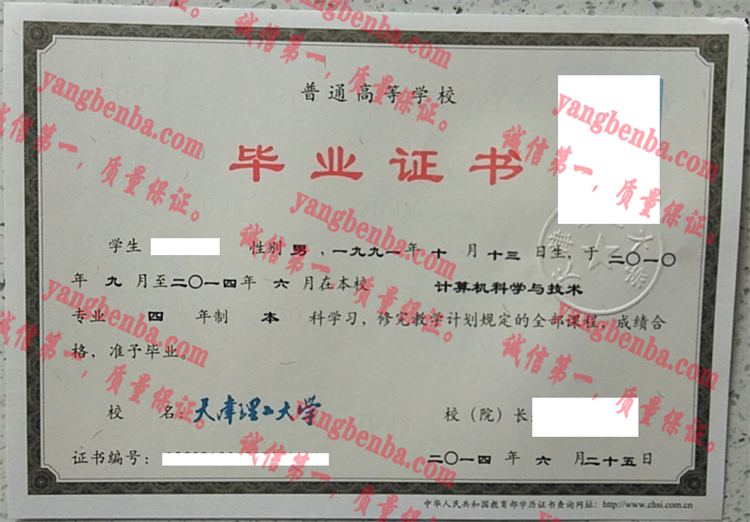 普通高等学校
毕业证书
学生 性别 男 ,一九九一年 十 月 十三 日生,于 二〇一〇
年 九 月至二〇一四年 六 月在本校 计算机科学与技术
专业 四 年制 本 科学习,修完教学计划规定的全部课程,成绩合
格,准予毕业。
校 名:天津理工大学 校(院)长:
证书编号: 二〇一四 年 六 月二十五日
中华人民共和国教育部学历证书查询网址:http://www.chsi.com.cn
yangbenba.com
诚信第一,质量保证。
yangbenba.com
诚信第一,质量保证。
yangbenba.com
诚信第一,质量保证。
yangbenba.com
诚信第一,质量保证。
yangbenba.com
诚信第一,质量保证。
yangbenba.com
诚信第一,质量保证。
yangbenba.com
诚信第一,质量保证。
yangbenba.com
诚信第一,质量保证。